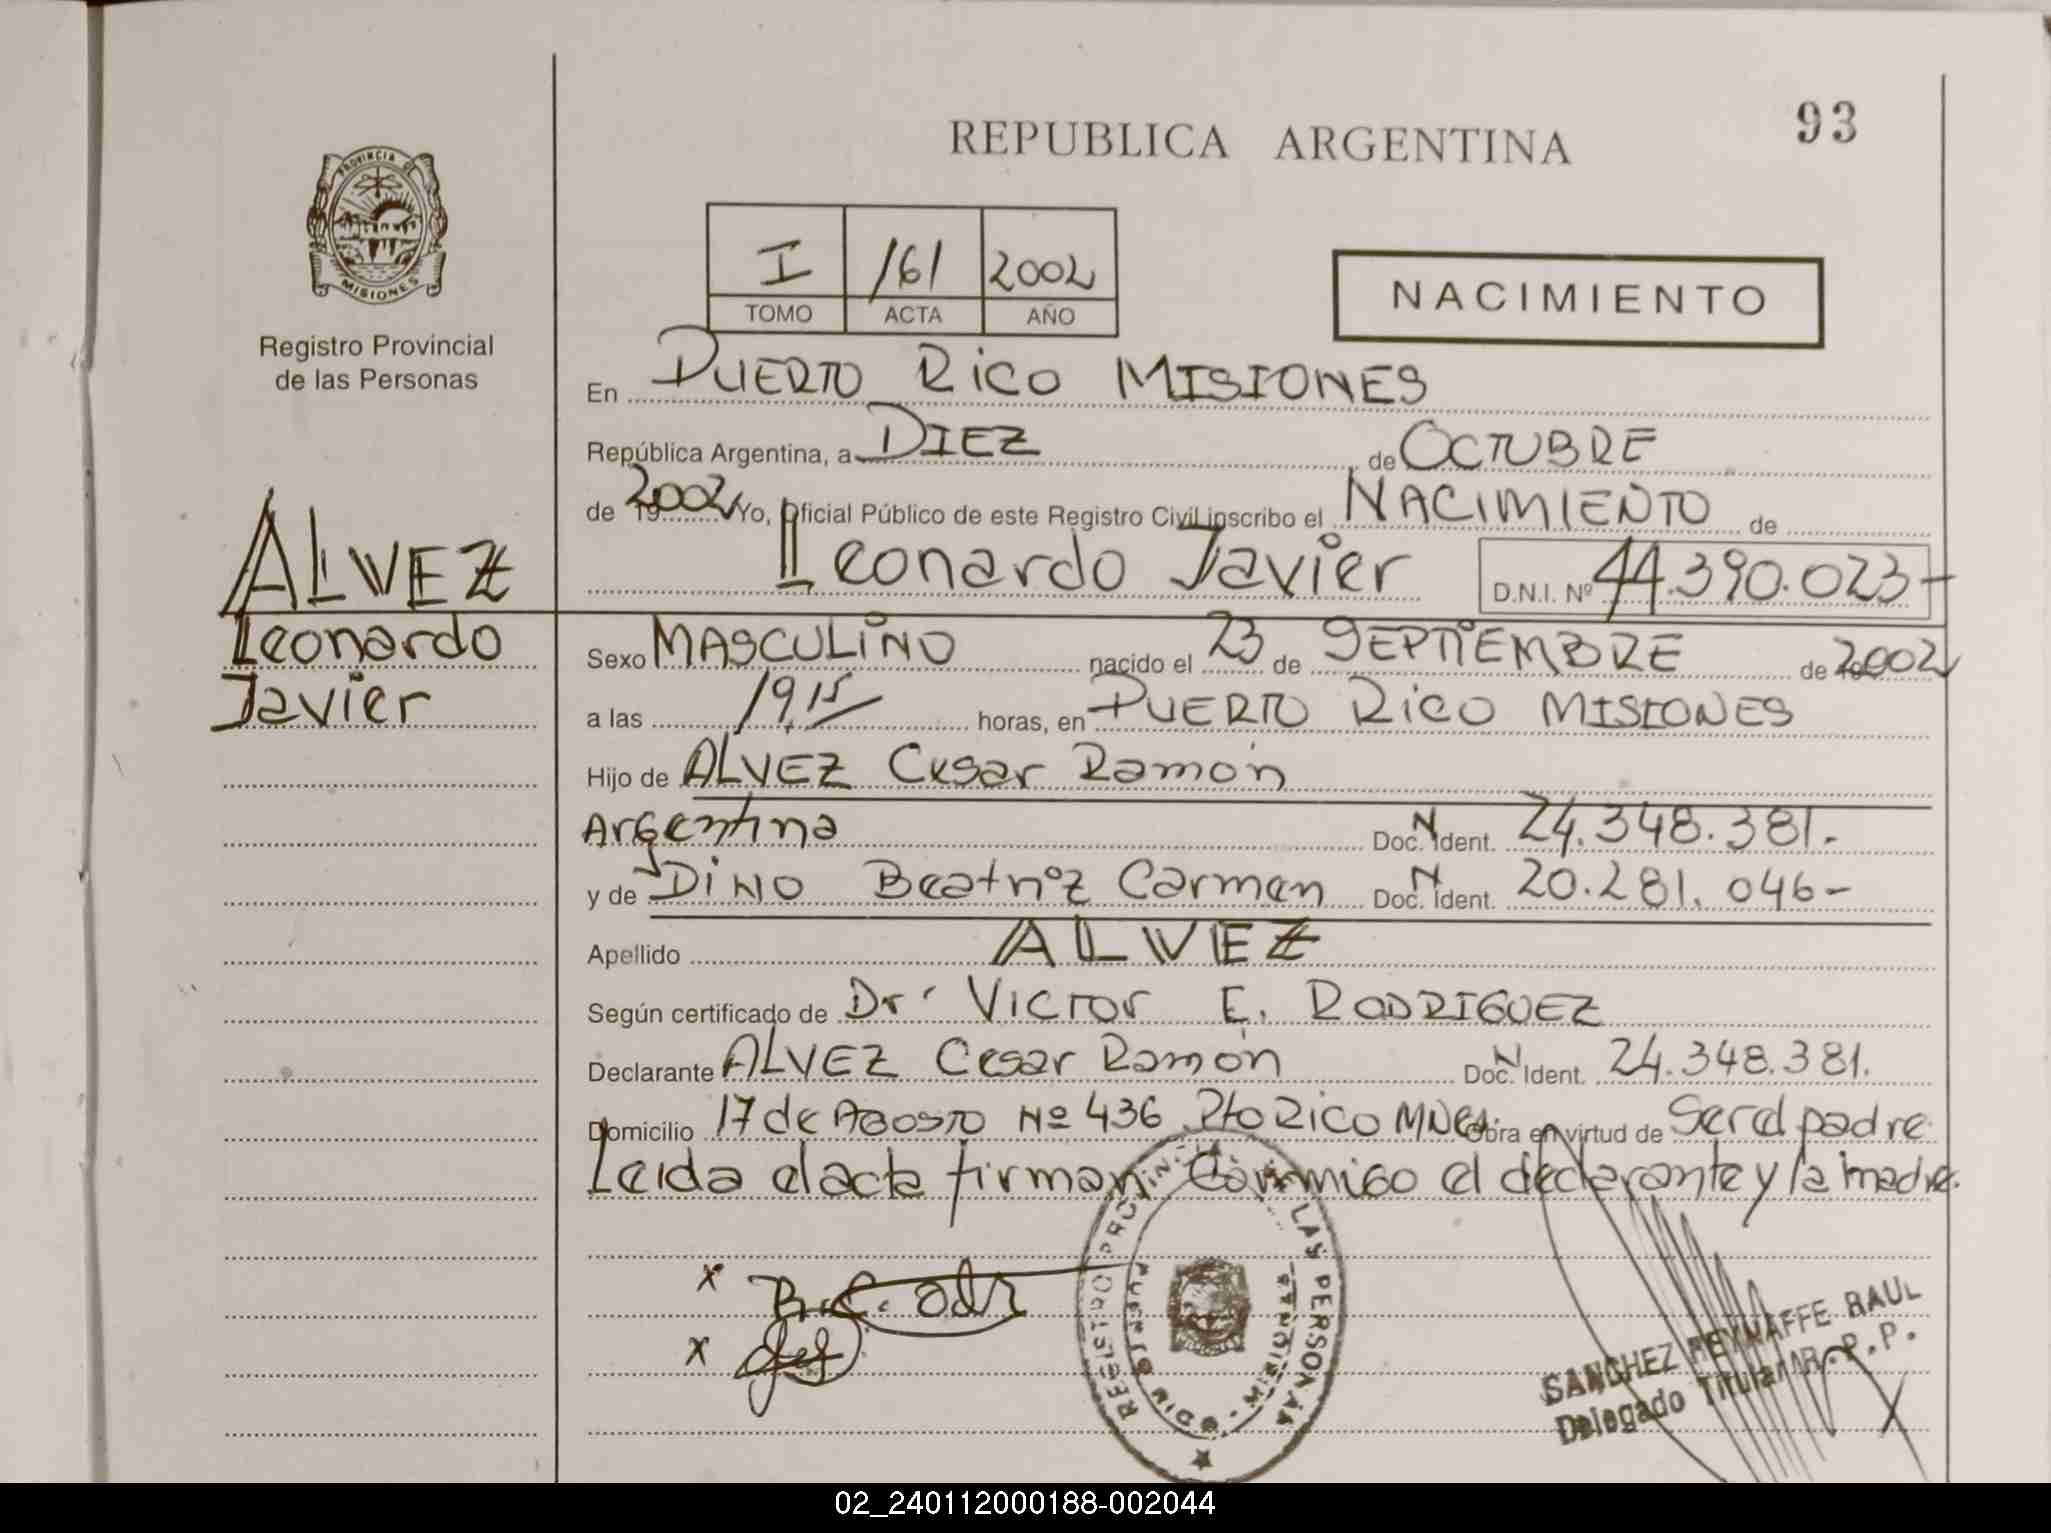 93
REPUBLICA ARGENTINA
PROVINCIA DE
MISIONES
Registro Provincial
de las Personas
I /61 2002
TOMO ACTA AÑO
NACIMIENTO
En PUERTO RICO MISIONES
República Argentina, a DIEZ de OCTUBRE
de 2002 Yo, Oficial Público de este Registro Civil inscribo el NACIMIENTO de
Leonardo Javier D.N.I. Nº 44.390.023-
ALVEZ
Leonardo
Javier
Sexo MASCULINO nacido el 23 de SEPTIEMBRE de 2002
a las 19,15 horas, en PUERTO RICO MISIONES
Hijo de ALVEZ Cesar Ramón
Argentina Doc. N Ident. 24.348.381.-
y de DINO Beatriz Carmen Doc. N Ident. 20.281.046-
Apellido ALVEZ
Según certificado de Dr. VICTOR E. RODRIGUEZ
Declarante ALVEZ Cesar Ramón Doc. N Ident. 24.348.381.
Domicilio 17 de AGOSTO Nº 436 Pto RICO MNES. Obra en virtud de Ser el padre
Leida el acta firman conmigo el declarante y la madre.
x
x
REGISTRO PROVINCIAL LAS PERSONAS
PUERTO RICO - MISIONES
SANCHEZ REYNAFFE RAUL
Delegado Titular R.P.P.
02_240112000188-002044